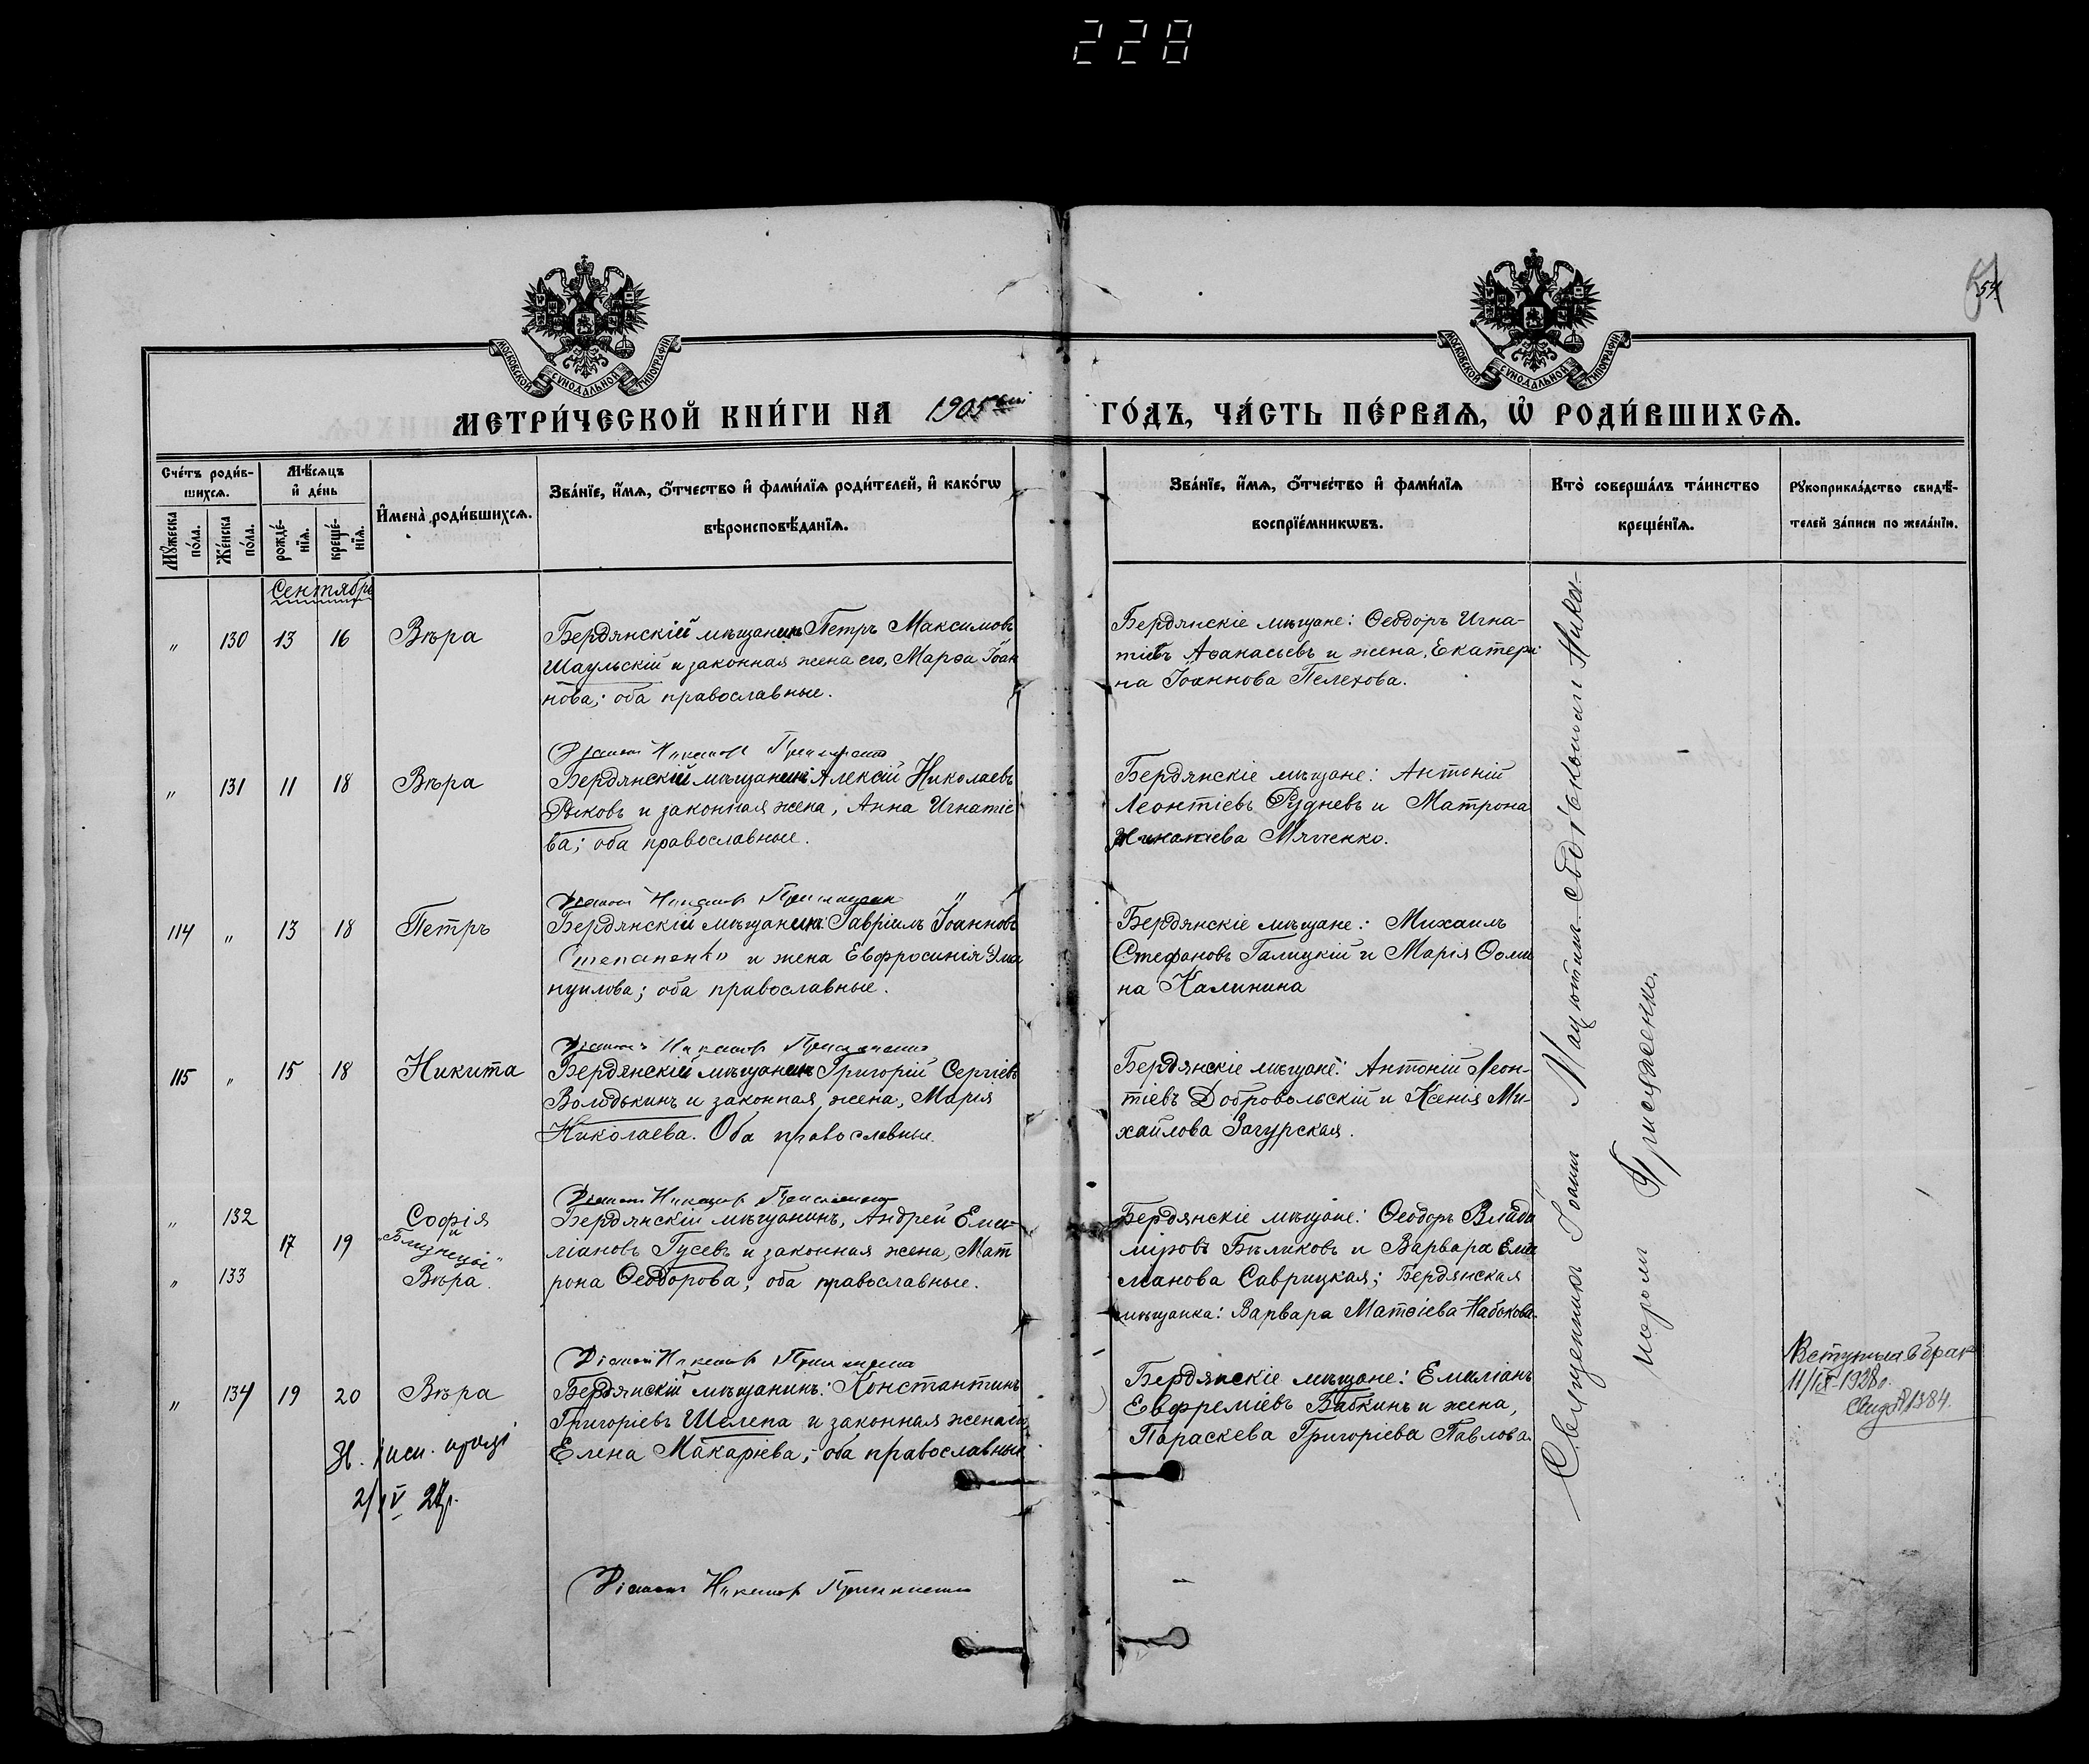 228
54
МОСКОВСКОЙ СѴНОДАЛЬНОЙ ТИПОГРАФІИ
МОСКОВСКОЙ СѴНОДАЛЬНОЙ ТИПОГРАФІИ
МЕТРИ́ЧЕСКОЙ КНИ́ГИ НА 1905 ГО́ДЪ, ЧА́СТЬ ПЕ́РВАѦ, Ѡ҆ РОДИ́ВШИХСѦ.
Сче́тъ роди́в-
шихсѧ.
Мꙋ́жеска
по́ла.
Же́нска
по́ла.
Мѣ́сѧцъ
и҆ де́нь
рожде́-
нїѧ.
креще́-
нїѧ.
И҆мена̀ роди́вшихсѧ.
Зва́нїе, и҆́мѧ, ѻ҆́тчество и҆ фами́лїѧ роди́телей, и҆ како́гѡ
вѣроисповѣ́данїѧ.
Зва́нїе, и҆́мѧ, ѻ҆́тчество и҆ фами́лїѧ
воспрїе́мникѡвъ.
Кто̀ соверша́лъ та́инство
креще́нїѧ.
Рꙋкоприкла́дство свидѣ́-
телей за́писи по жела́нїю.
Сентябрь
" 130 13 16 Вѣра
Бердянскій мѣщанинъ Петръ Максимовъ
Шаульскій и законная жена его, Марѳа Іоан
нова; оба православные.
Бердянскіе мѣщане: Ѳеодоръ Игна-
тіевъ Аѳанасьевъ и жена, Екатери
на Іоаннова Пелехова.
Діаконъ Никаноръ
" 131 11 18 Вѣра
Бердянскій мѣщанинъ Алексій Николаевъ
Рыковъ и законная жена, Анна Игнатіе
ва; оба православные.
Бердянскіе мѣщане: Антоній
Леонтіевъ Рудневъ и Матрона
Діаконъ Никаноръ
114 " 13 18 Петръ
Бердянскій мѣщанинъ Гавріилъ Іоанновъ
Степаненко и жена Евфросинія Эма
нуилова; оба православные.
Бердянскіе мѣщане: Михаилъ
Стефановъ Галицкій и Марія Ѳоми
на Калинина
Діаконъ Никаноръ
115 " 15 18 Никита
Бердянскій мѣщанинъ Григорій Сергіевъ
Волидькинъ и законная жена, Марія
Николаева. Оба православные.
Бердянскіе мѣщане: Антоній Леон-
тіевъ Добровольскій и Ксенія Ми-
хайлова Загурская.
Діаконъ Никаноръ
" 132 17 19 Софія
и
"Близнецы"
" 133 Вѣра.
Бердянскій мѣщанинъ, Андрей Еми-
ліановъ Гусевъ и законная жена, Мат
рона Ѳеодорова; оба православные.
Бердянскіе мѣщане: Ѳеодоръ Влади
міровъ Бѣликовъ и Варвара Еми
ліанова Саврицкая; Бердянская
мѣщанка: Варвара Матѳіева Набокова.
Діаконъ Никаноръ
" 134 19 20 Вѣра
Бердянскій мѣщанинъ: Константинъ
Григоріевъ Шелепа и законная жена его
Елена Макаріева; оба православные.
Бердянскіе мѣщане: Емиліанъ
Евфреміевъ Бабкинъ и жена,
Параскева Григоріева Павлова.
Вступила в брак
11/IX-1928г.
Свид № 1384.
2/IV
Діаконъ Никаноръ
Священникъ Іоаннъ